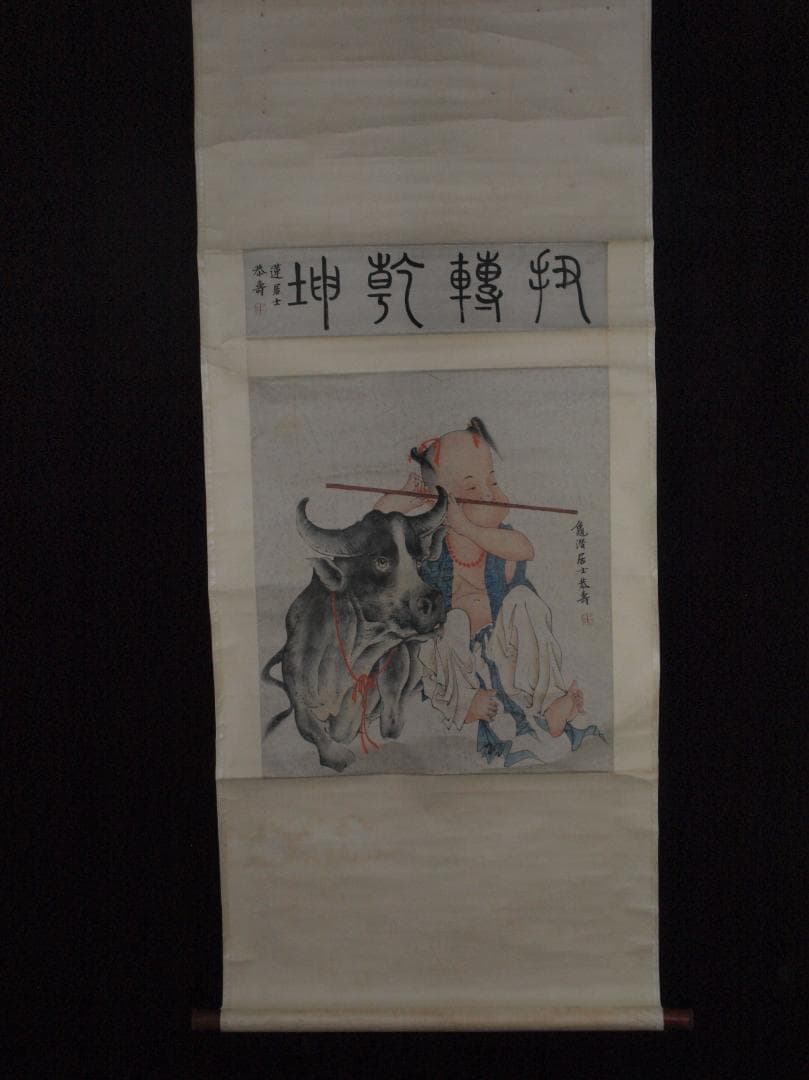 扭轉乾坤
蓮居士
恭壽
龜潛居士恭壽